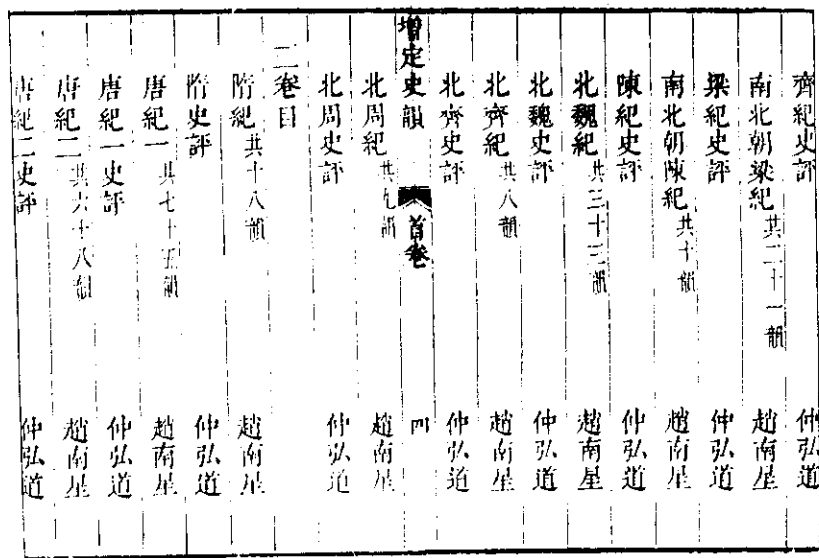 齊紀史評 仲弘道
南北朝梁紀共二十一韻 趙南星
梁紀史評 仲弘道
南北朝陳紀共十韻 趙南星
陳紀史評 仲弘道
北魏紀共三十三韻 趙南星
北魏史評 仲弘道
北齊紀共八韻 趙南星
北齊史評 仲弘道
增定史韻 首卷 四
北周紀共九韻 趙南星
北周史評 仲弘道
二卷目
隋紀共十八韻 趙南星
隋史評 仲弘道
唐紀一共七十五韻 趙南星
唐紀一史評 仲弘道
唐紀二共六十八韻 趙南星
唐紀二史評 仲弘道